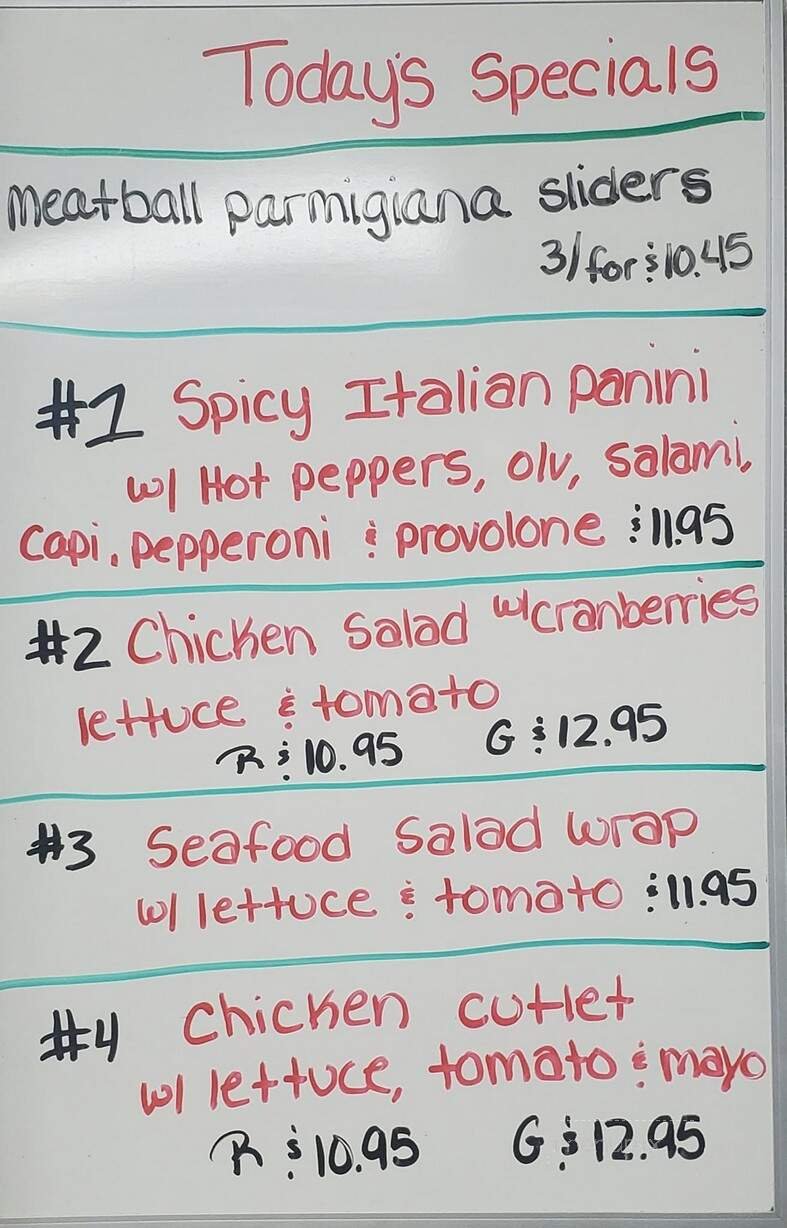 Today's Specials
meatball parmigiana sliders
3/for $10.45
#1 Spicy Italian Panini
w/ Hot peppers, olv, salami,
Capi, pepperoni & provolone $11.95
#2 Chicken Salad w/cranberries
lettuce & tomato
R $10.95 G $12.95
#3 Seafood Salad wrap
w/ lettuce & tomato $11.95
#4 Chicken cutlet
w/ lettuce, tomato & mayo
R $10.95 G $12.95